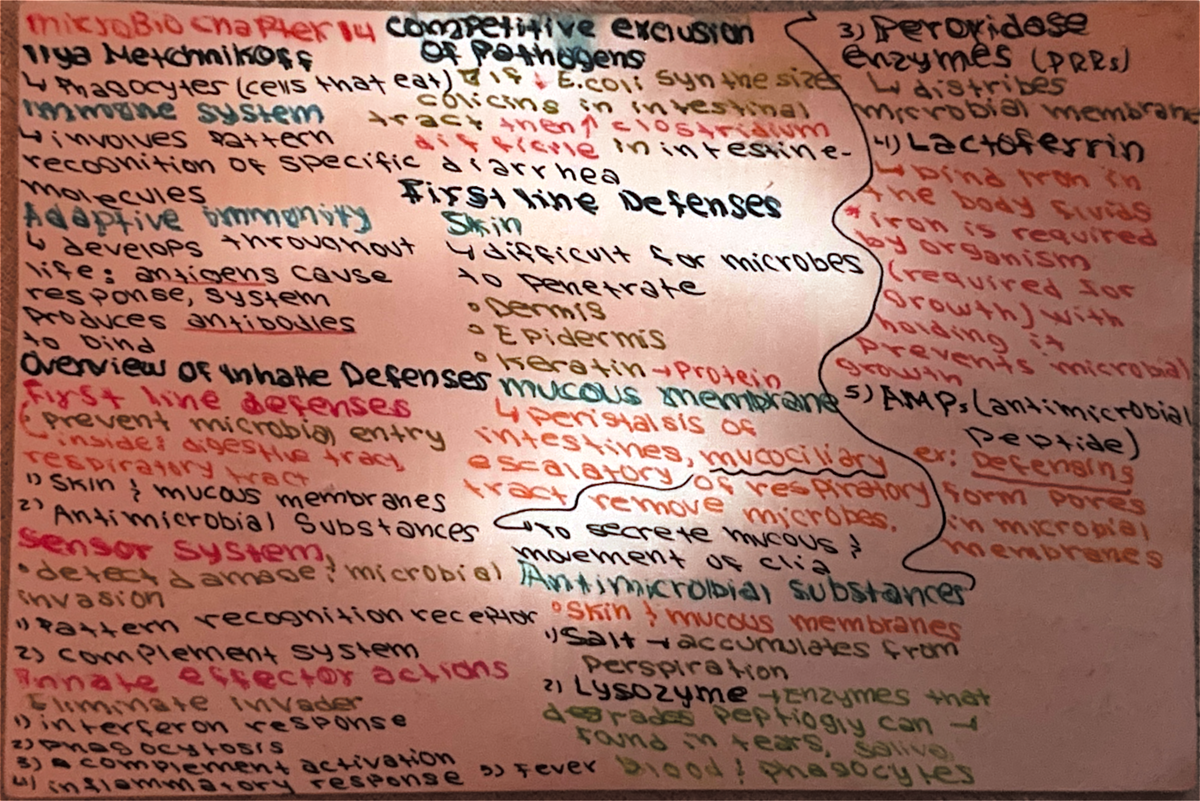 microBio chapter 14
Ilya Metchnikoff
↳ Phagocytes (cells that eat)
Immune system
↳ involves pattern
recognition of specific
molecules
Adaptive immunity
↳ develops throughout
life: antigens cause
response, system
produces antibodies
to bind
Overview of Innate Defenses
First line defenses
• prevent microbial entry
↳ inside: digestive tract,
respiratory tract
1) Skin & mucous membranes
2) Antimicrobial Substances
Sensor system
• detect damage & microbial
invasion
1) Pattern recognition receptor
2) complement system
Innate effector actions
Eliminate invader
1) interferon response
2) phagocytosis
3) complement activation
4) inflammatory response 5) Fever
competitive exclusion
of Pathogens
if ↓ E.coli synthesizes
colicins in intestinal
tract then ↑ clostridium
difficile in intestine-
diarrhea
First line Defenses
Skin
↳ difficult for microbes
to penetrate
• Dermis
• Epidermis
• Keratin → Protein
mucous membrane
↳ peristalsis of
intestines, mucociliary
escalatory of respiratory
tract remove microbes.
↳ to secrete mucous &
movement of clia
Antimicrolbial substances
• Skin & mucous membranes
1) Salt → accumulates from
perspiration
2) Lysozyme → Enzymes that
degrades peptiogly can →
found in tears, saliva,
blood & phagocytes
3) Peroxidase
enzymes (PRRs)
↳ distribes
microbial membrane
4) Lactoferrin
↳ bind Iron in
the body fluids
* iron is required
by organism
(required for
growth) with
holding it
prevents microbial
growth
5) AMPs (antimicrobial
peptide)
ex: Defensing
form pores
in microbial
membranes